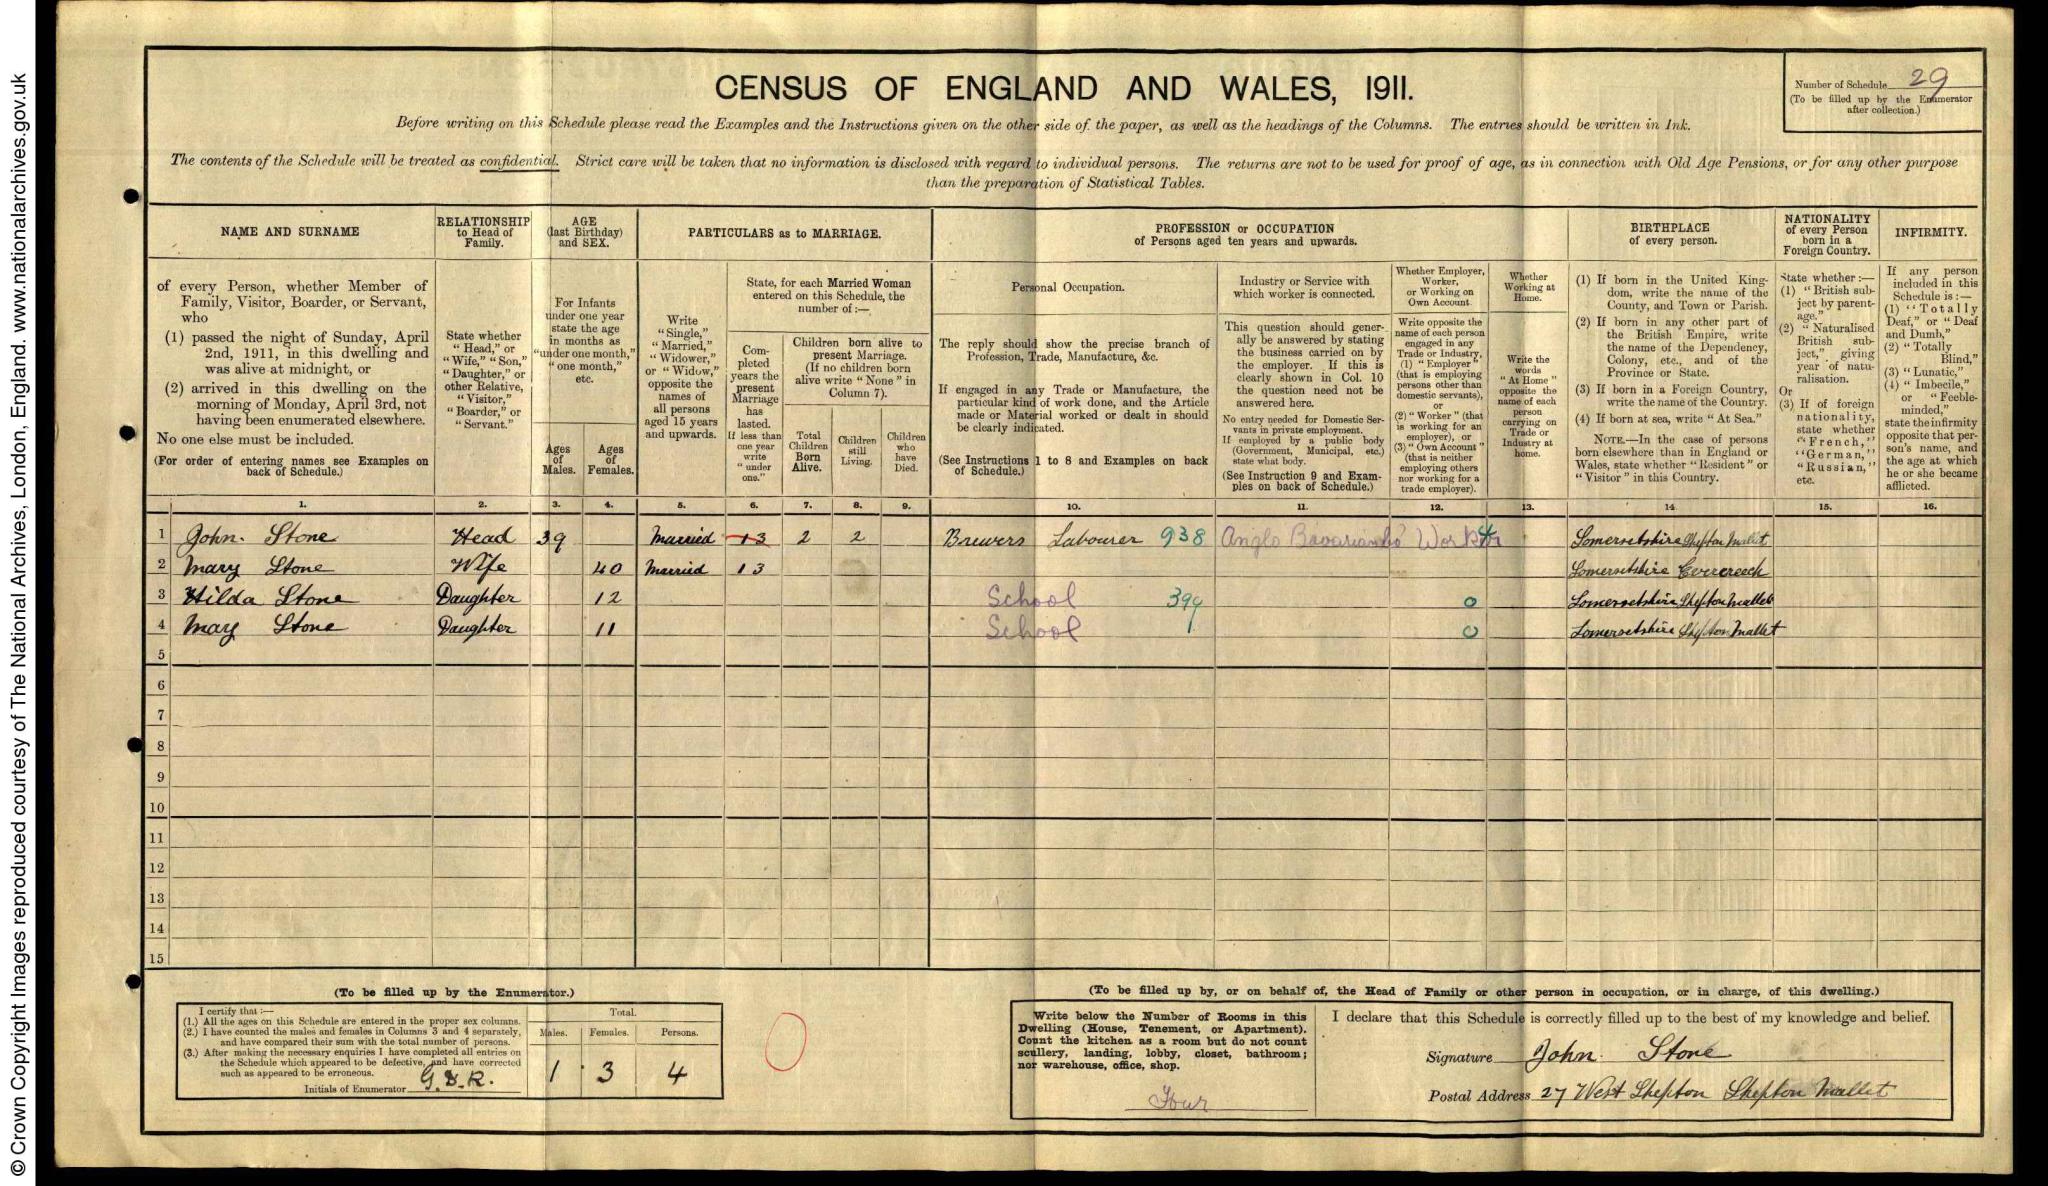 © Crown Copyright Images reproduced courtesy of The National Archives, London, England. www.nationalarchives.gov.uk
CENSUS OF ENGLAND AND WALES, 1911.
Number of Schedule 29
(To be filled up by the Enumerator
after collection.)
Before writing on this Schedule please read the Examples and the Instructions given on the other side of the paper, as well as the headings of the Columns. The entries should be written in Ink.
The contents of the Schedule will be treated as confidential. Strict care will be taken that no information is disclosed with regard to individual persons. The returns are not to be used for proof of age, as in connection with Old Age Pensions, or for any other purpose
than the preparation of Statistical Tables.
NAME AND SURNAME
of every Person, whether Member of
Family, Visitor, Boarder, or Servant,
who
(1) passed the night of Sunday, April
2nd, 1911, in this dwelling and
was alive at midnight, or
(2) arrived in this dwelling on the
morning of Monday, April 3rd, not
having been enumerated elsewhere.
No one else must be included.
(For order of entering names see Examples on
back of Schedule.)
RELATIONSHIP
to Head of
Family.
State whether
"Head," or
"Wife," "Son,"
"Daughter," or
other Relative,
"Visitor,"
"Boarder," or
"Servant."
AGE
(last Birthday)
and SEX.
For Infants
under one year
state the age
in months as
"under one month,"
"one month,"
etc.
Ages
of
Males.
Ages
of
Females.
PARTICULARS as to MARRIAGE.
Write
"Single,"
"Married,"
"Widower,"
or "Widow,"
opposite the
names of
all persons
aged 15 years
and upwards.
State, for each Married Woman
entered on this Schedule, the
number of :—
Com-
pleted
years the
present
Marriage
has
lasted.
If less than
one year
write
"under
one."
Children born alive to
present Marriage.
(If no children born
alive write "None" in
Column 7).
Total
Children
Born
Alive.
Children
still
Living.
Children
who
have
Died.
PROFESSION or OCCUPATION
of Persons aged ten years and upwards.
Personal Occupation.
The reply should show the precise branch of
Profession, Trade, Manufacture, &c.
If engaged in any Trade or Manufacture, the
particular kind of work done, and the Article
made or Material worked or dealt in should
be clearly indicated.
(See Instructions 1 to 8 and Examples on back
of Schedule.)
Industry or Service with
which worker is connected.
This question should gener-
ally be answered by stating
the business carried on by
the employer. If this is
clearly shown in Col. 10
the question need not be
answered here.
No entry needed for Domestic Ser-
vants in private employment.
If employed by a public body
(Government, Municipal, etc.)
state what body.
(See Instruction 9 and Exam-
ples on back of Schedule.)
Whether Employer,
Worker,
or Working on
Own Account
Write opposite the
name of each person
engaged in any
Trade or Industry,
(1) "Employer"
(that is employing
persons other than
domestic servants),
or
(2) "Worker" (that
is working for an
employer), or
(3) "Own Account"
(that is neither
employing others
nor working for a
trade employer).
Whether
Working at
Home.
Write the
words
"At Home"
opposite the
name of each
person
carrying on
Trade or
Industry at
home.
BIRTHPLACE
of every person.
(1) If born in the United King-
dom, write the name of the
County, and Town or Parish.
(2) If born in any other part of
the British Empire, write
the name of the Dependency,
Colony, etc., and of the
Province or State.
(3) If born in a Foreign Country,
write the name of the Country.
(4) If born at sea, write "At Sea."
NOTE.—In the case of persons
born elsewhere than in England or
Wales, state whether "Resident" or
"Visitor" in this Country.
NATIONALITY
of every Person
born in a
Foreign Country.
State whether :—
(1) "British sub-
ject by parent-
age."
(2) "Naturalised
British sub-
ject," giving
year of natu-
ralisation.
Or
(3) If of foreign
nationality,
state whether
"French,"
"German,"
"Russian,"
etc.
INFIRMITY.
If any person
included in this
Schedule is :—
(1) "Totally
Deaf," or "Deaf
and Dumb,"
(2) "Totally
Blind,"
(3) "Lunatic,"
(4) "Imbecile,"
or "Feeble-
minded,"
state the infirmity
opposite that per-
son's name, and
the age at which
he or she became
afflicted.
1. 2. 3. 4. 5. 6. 7. 8. 9. 10. 11. 12. 13. 14. 15. 16.
1 John Stone Head 39 Married 13 2 2 Brewers Labourer 938 Anglo Bavarian Co Worker 4 Somersetshire Shepton Mallet
2 Mary Stone Wife 40 Married 13 Somersetshire Evercreech
3 Hilda Stone Daughter 12 School 399 0 Somersetshire Shepton Mallet
4 Mary Stone Daughter 11 School 0 Somersetshire Shepton Mallet
5
6
7
8
9
10
11
12
13
14
15
(To be filled up by the Enumerator.)
I certify that :—
(1.) All the ages on this Schedule are entered in the proper sex columns.
(2.) I have counted the males and females in Columns 3 and 4 separately,
and have compared their sum with the total number of persons.
(3.) After making the necessary enquiries I have completed all entries on
the Schedule which appeared to be defective, and have corrected
such as appeared to be erroneous.
Initials of Enumerator
Total.
Males. Females. Persons.
1 3 4
0
(To be filled up by, or on behalf of, the Head of Family or other person in occupation, or in charge, of this dwelling.)
Write below the Number of Rooms in this
Dwelling (House, Tenement, or Apartment).
Count the kitchen as a room but do not count
scullery, landing, lobby, closet, bathroom;
nor warehouse, office, shop.
Four
I declare that this Schedule is correctly filled up to the best of my knowledge and belief.
Signature John Stone
Postal Address 27 West Shepton Shepton Mallet